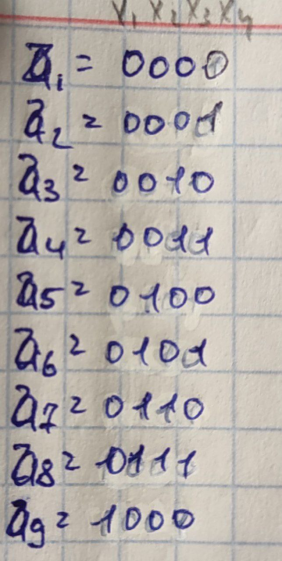 x₁ x₂ x₃ x₄
a̅₁ = 0000
a̅₂ = 0001
a̅₃ = 0010
a̅₄ = 0011
a̅₅ = 0100
a̅₆ = 0101
a̅₇ = 0110
a̅₈ = 0111
a̅₉ = 1000